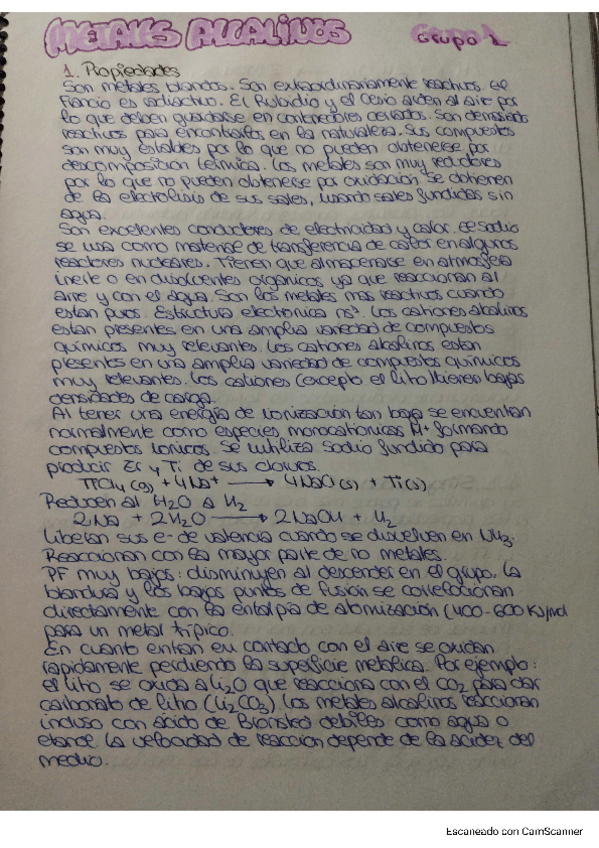 METALES ALCALINOS Grupo 1
1. Propiedades
Son metales blandos. Son extraordinariamente reactivos. El
Francio es radiactivo. El Rubidio y el Cesio arden al aire por
lo que deben guardarse en contenedores cerrados. Son demasiado
reactivos para encontrarlos en la naturaleza. Sus compuestos
son muy estables por lo que no pueden obtenerse por
descomposición térmica. Los metales son muy reductores
por lo que no pueden obtenerse por oxidación. Se obtienen
de la electrolisis de sus sales, usando sales fundidas sin
agua.
Son excelentes conductores de electricidad y calor. El sodio
se usa como material de transferencia de calor en algunos
reactores nucleares. Tienen que almacenarse en atmosfera
inerte o en disolventes organicos ya que reaccionan al
aire y con el agua. Son los metales mas reactivos cuando
estan puros. Estructura electronica ns¹. Los cationes alcalinos
estan presentes en una amplia variedad de compuestos
químicos muy relevantes. Los cationes alcalinos estan
presentes en una amplia variedad de compuestos químicos
muy relevantes. Los cationes (excepto el litio) tienen bajas
densidades de carga.
Al tener una energía de ionización tan baja se encuentran
normalmente como especies monocationicas M+ formando
compuestos ionicos. Se utiliza Sodio fundido para
producir Zr y Ti de sus cloruros.
TiCl4 (g) + 4Na⁺ → 4NaCl(s) + Ti(s)
Reducen al H2O a H2
2Na + 2H2O → 2NaOH + H2
Liberan sus e- de valencia cuando se disuelven en NH3.
Reaccionan con la mayor parte de no metales.
PF muy bajos: disminuyen al descender en el grupo. La
blandura y los bajos puntos de fusión se correlacionan
directamente con la entalpía de atomización (400-600 KJ/mol
para un metal típico.
En cuanto entran en contacto con el aire se oxidan
rapidamente perdiendo la superficie metalica. Por ejemplo:
el litio se oxida a Li2O que reacciona con el CO2 para dar
carbonato de litio (Li2CO3) Los metales alcalinos reaccionan
incluso con ácido de Bronsted debiles como agua o
etanol. La velocidad de reacción depende de la acidez del
medio.
Escaneado con CamScanner